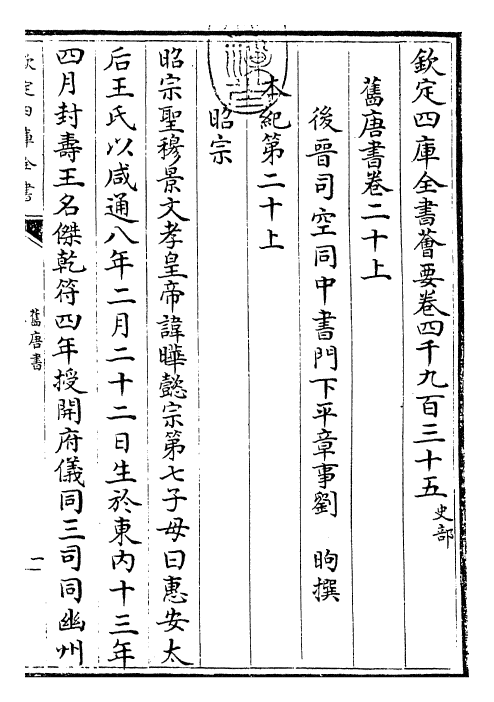 欽定四庫全書薈要卷四千九百三十五 史部
舊唐書卷二十上
後晉司空同中書門下平章事劉 昫撰
本紀第二十上
昭宗
昭宗聖穆景文孝皇帝諱曄懿宗第七子母曰惠安太
后王氏以咸通八年二月二十二日生於東內十三年
四月封壽王名傑乾符四年授開府儀同三司同幽州
欽定四庫全書
舊唐書
一